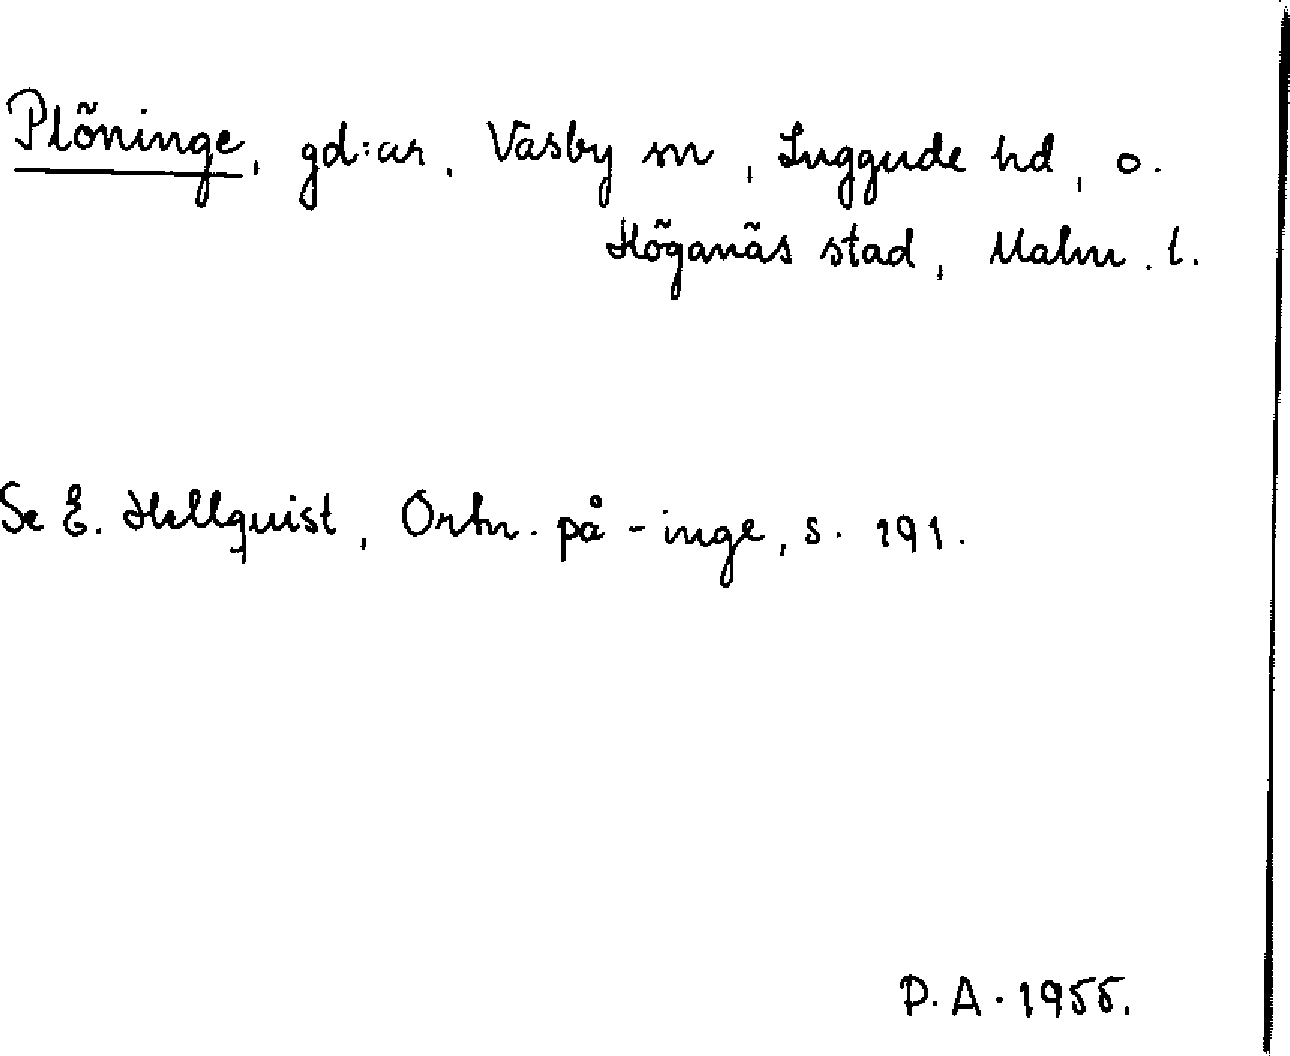 Plöninge, gd:ar, Väsby sn, Luggude hd, o.
Höganäs stad, Malm. l.
Se E. Hellquist, Ortn. på -inge, s. 191.
P.A. 1955.